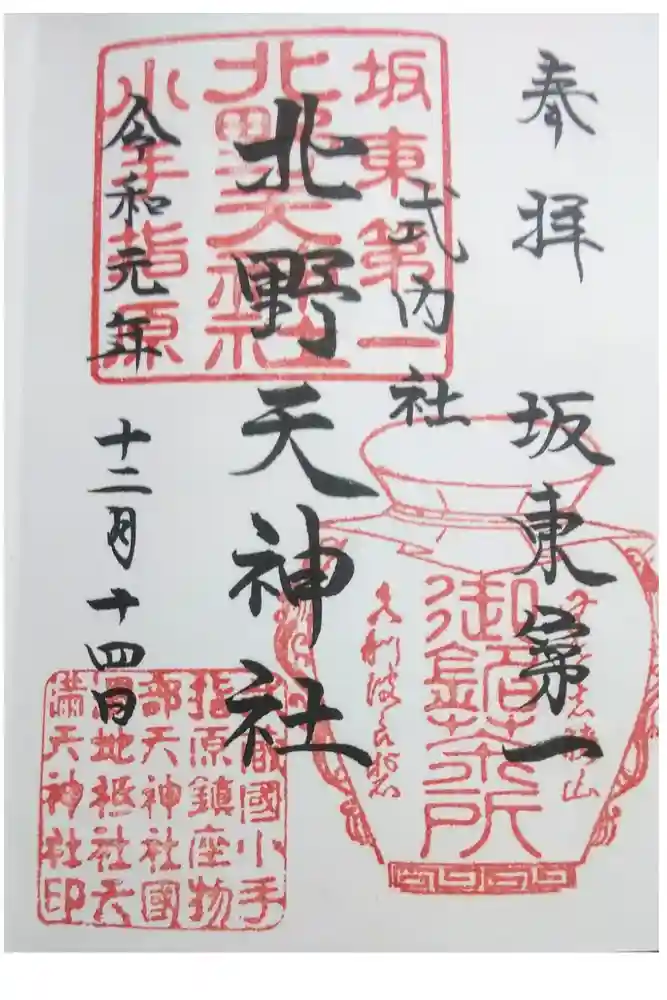 奉拝
坂東第一
式内社
北野天神社
令和元年
十二月十四日
坂東第一
北野天神社
小手指原
御銘茶所
國小手
指原鎮座物
部天神社國
渭地祇社天
満天神社印